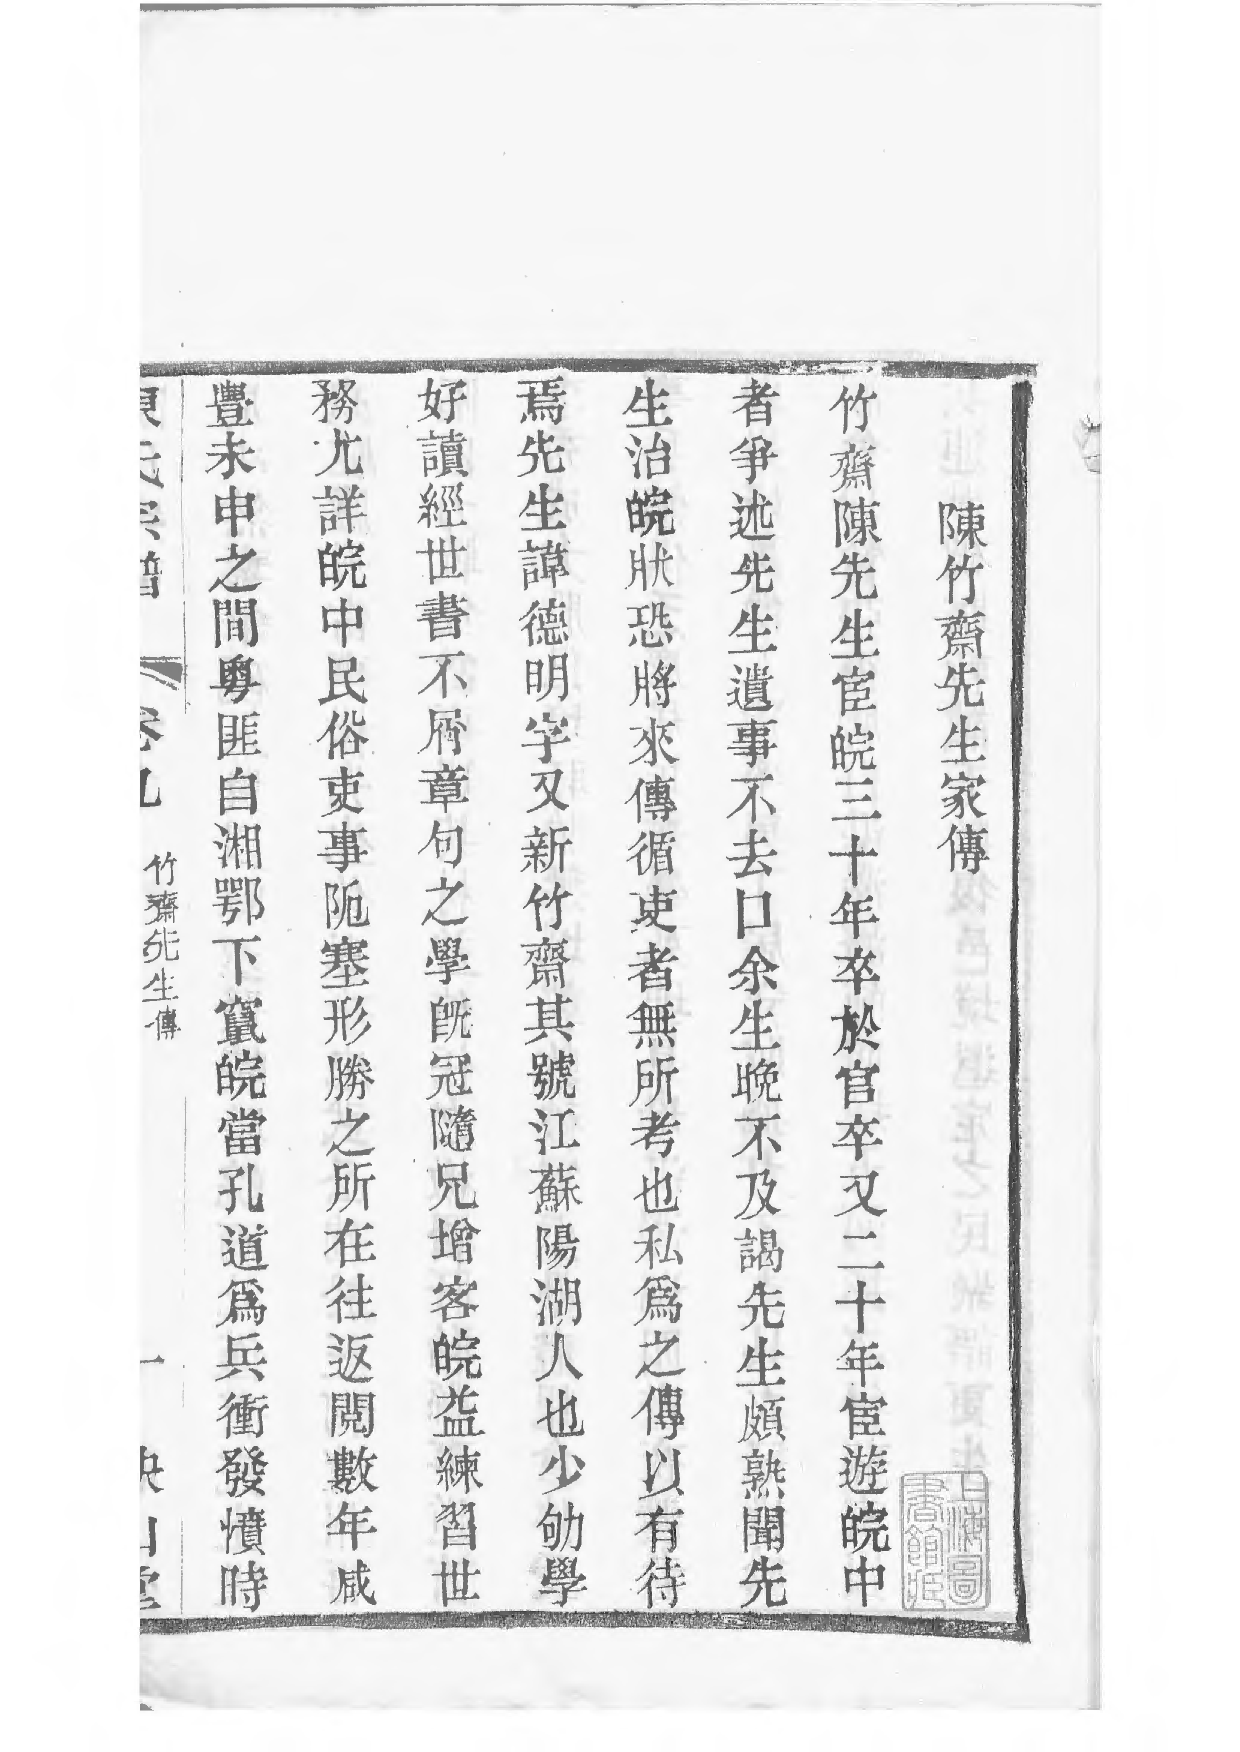 陳竹齋先生家傳
竹齋陳先生宦皖三十年卒於官卒又二十年宦遊皖中
者爭述先生遺事不去口余生晚不及謁先生頗熟聞先
生治皖狀恐將來傳循吏者無所考也私爲之傳以有待
焉先生諱德明字又新竹齋其號江蘇陽湖人也少劬學
好讀經世書不屑章句之學旣冠隨兄增客皖益練習世
務尤詳皖中民俗吏事阨塞形勝之所在往返閱數年咸
豐未申之間粵匪自湘鄂下竄皖當孔道爲兵衝發憤時
氏宗譜
卷九
竹齋先生傳
一